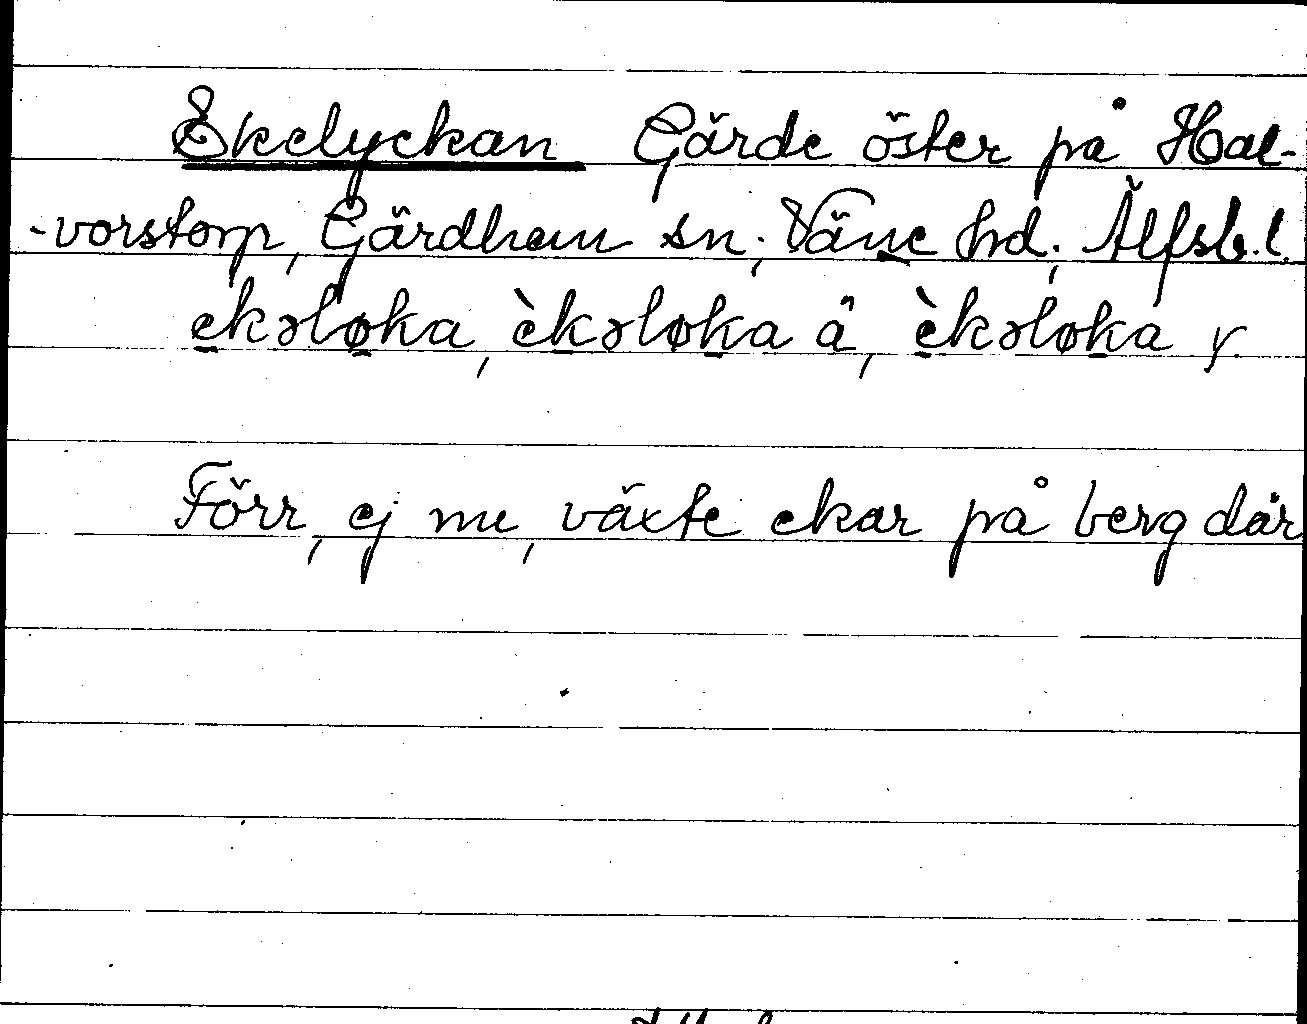 Ekelyckan Gärde öster på Hal-
-vorstorp, Gärdhem sn; Väne hd; Älfsb. l.
ekəløka, èkəløka â, èkəløka y.
Förr, ej nu, växte ekar på berg där